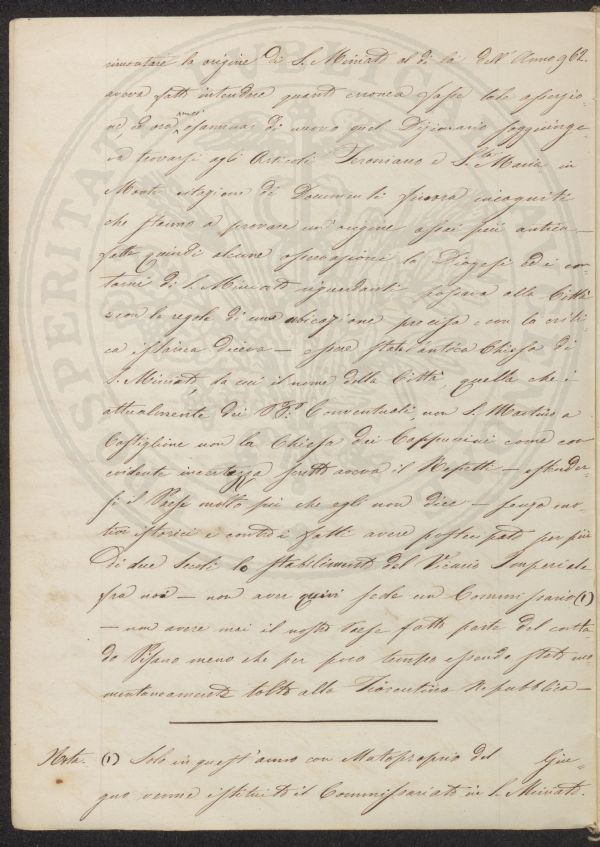 rimontare la origine di S. Miniato al di là dell'Anno 962.
aveva fatti intendere quanto erronea fosse tale asserzio-
ne, ed ora esaminai di nuovo quel Dizionario soggiunge-
va trovarsi agli Articoli Ieroniano e S.ta Maria in
Monte citazioni di Documenti finora incogniti
che stanno a provare un'origine assai più antica —
fatte quindi alcune osservazioni la Diogesi ed i con-
torni di S. Miniato riguardanti passava alla Città
e con le regole di una ubicazione precisa e con la criti-
ca istorica diceva — essere stata l'antica Chiesa di
S. Miniato, da cui il nome della Città, quella che è
attualmente dei PP. Conventuali non S. Martino a
Castiglione non la Chiesa dei Cappuccini come con
evidente incertezza scritto aveva il Repetti — estender-
si il Paese molto più che egli non dice — senza mo-
tivi istorici e contro i fatti avere posticipato per più
di due secoli lo stabilimento del Vicario Imperiale
fra noi — non aver quivi sede un Commissario (1)
— non avere mai il nostro Paese fatto parte del conta
do Pisano meno che per poco tempo essendo stato mo-
mentaneamente tolto alla Fiorentina Repubblica —
Nota. (1) Solo in quest'anno con Motoproprio del Giu-
gno venne istituito il Commissariato in S. Miniato.